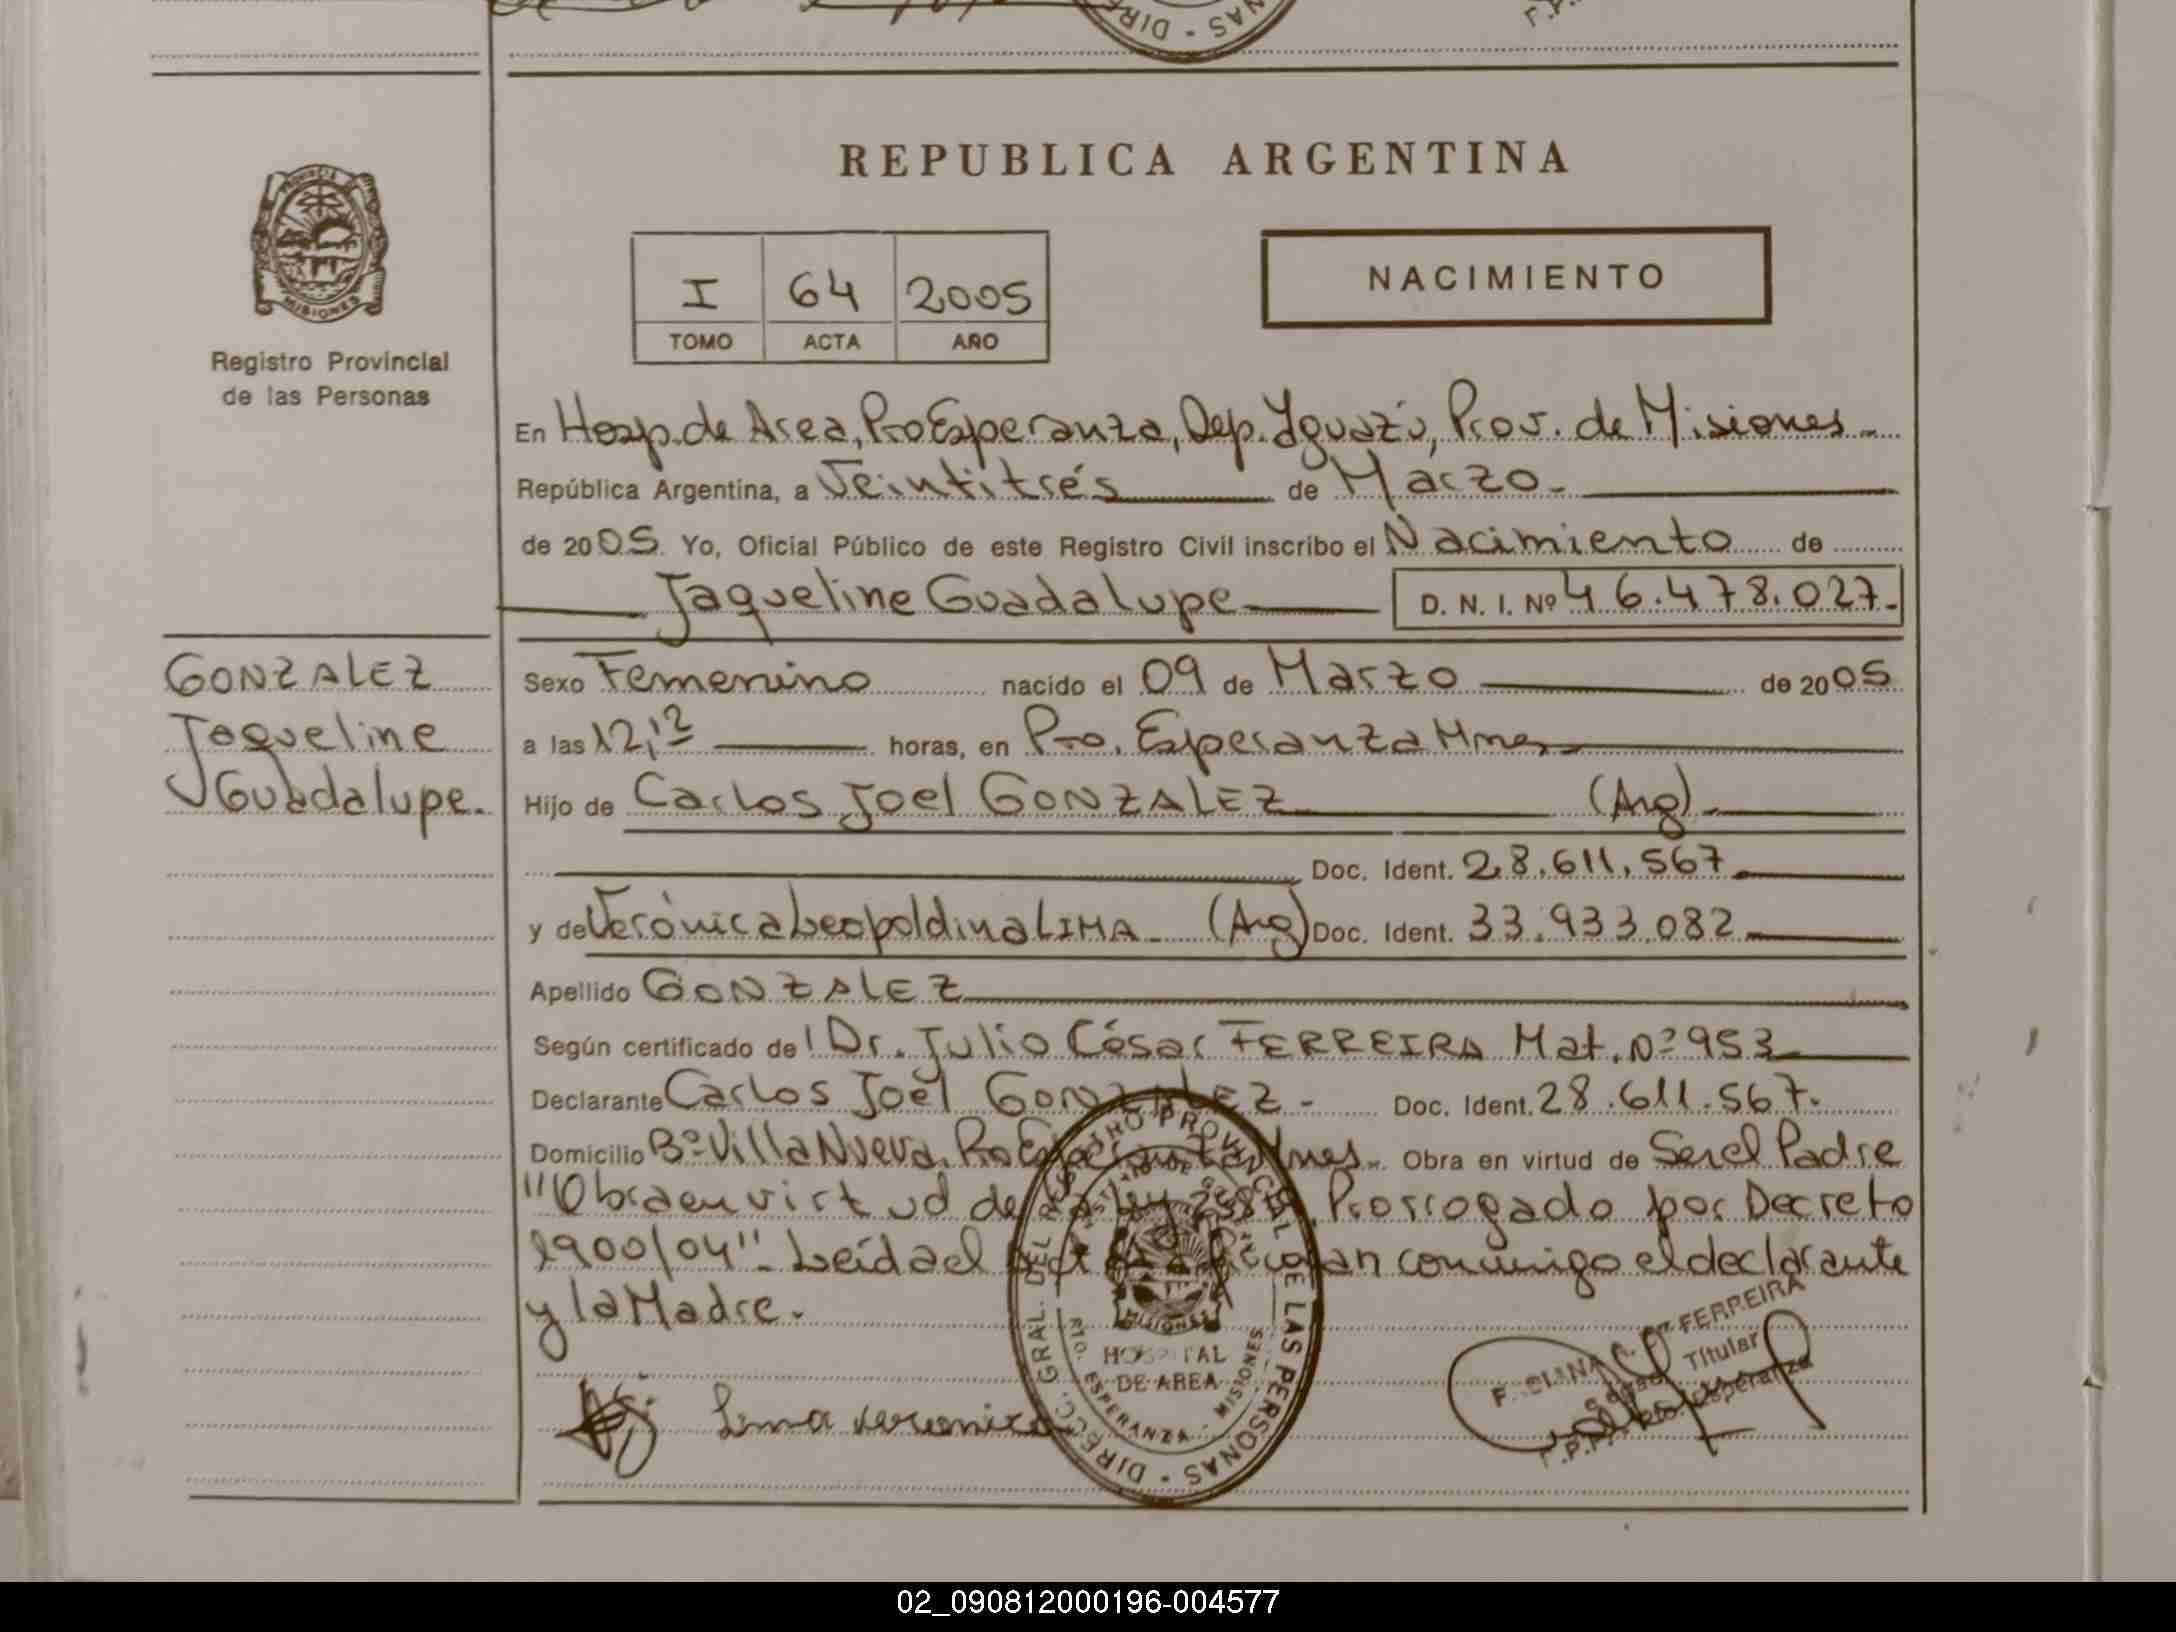 REPUBLICA ARGENTINA
I 64 2005
TOMO ACTA AÑO
NACIMIENTO
PROVINCIA DE
MISIONES
Registro Provincial
de las Personas
GONZALEZ
Jaqueline
Guadalupe.
En Hosp. de Area, Pto Esperanza, Dep. Iguazú, Prov. de Misiones
República Argentina, a Veintitrés de Marzo
de 2005. Yo, Oficial Público de este Registro Civil inscribo el Nacimiento de
Jaqueline Guadalupe D. N. I. Nº 46.478.027.
Sexo Femenino nacido el 09 de Marzo de 2005
a las 12,12 horas, en Pto. Esperanza Mnes
Hijo de Carlos Joel GONZALEZ (Arg)
Doc. Ident. 28.611.567
y de Verónica Leopoldina LIMA (Arg) Doc. Ident. 33.933.082
Apellido GONZALEZ
Según certificado del Dr. Julio César FERREIRA Mat. Nº 953
Declarante Carlos Joel GONZALEZ - Doc. Ident. 28.611.567.
Domicilio Bº Villa Nueva, Pto Esperanza Mnes. Obra en virtud de Ser el Padre
"Obra en virtud de la Ley Prorrogado por Decreto
1900/04". Leída el Acta firman conmigo el declarante
y la Madre.
Lima Veronica
DIRECC. GRAL. DEL REGISTRO PROVINCIAL DE LAS PERSONAS
MISIONES
HOSPITAL
DE AREA
PTO. ESPERANZA - MISIONES
FERREIRA
Titular
Pto. Esperanza
DIRE NAS
02_090812000196-004577